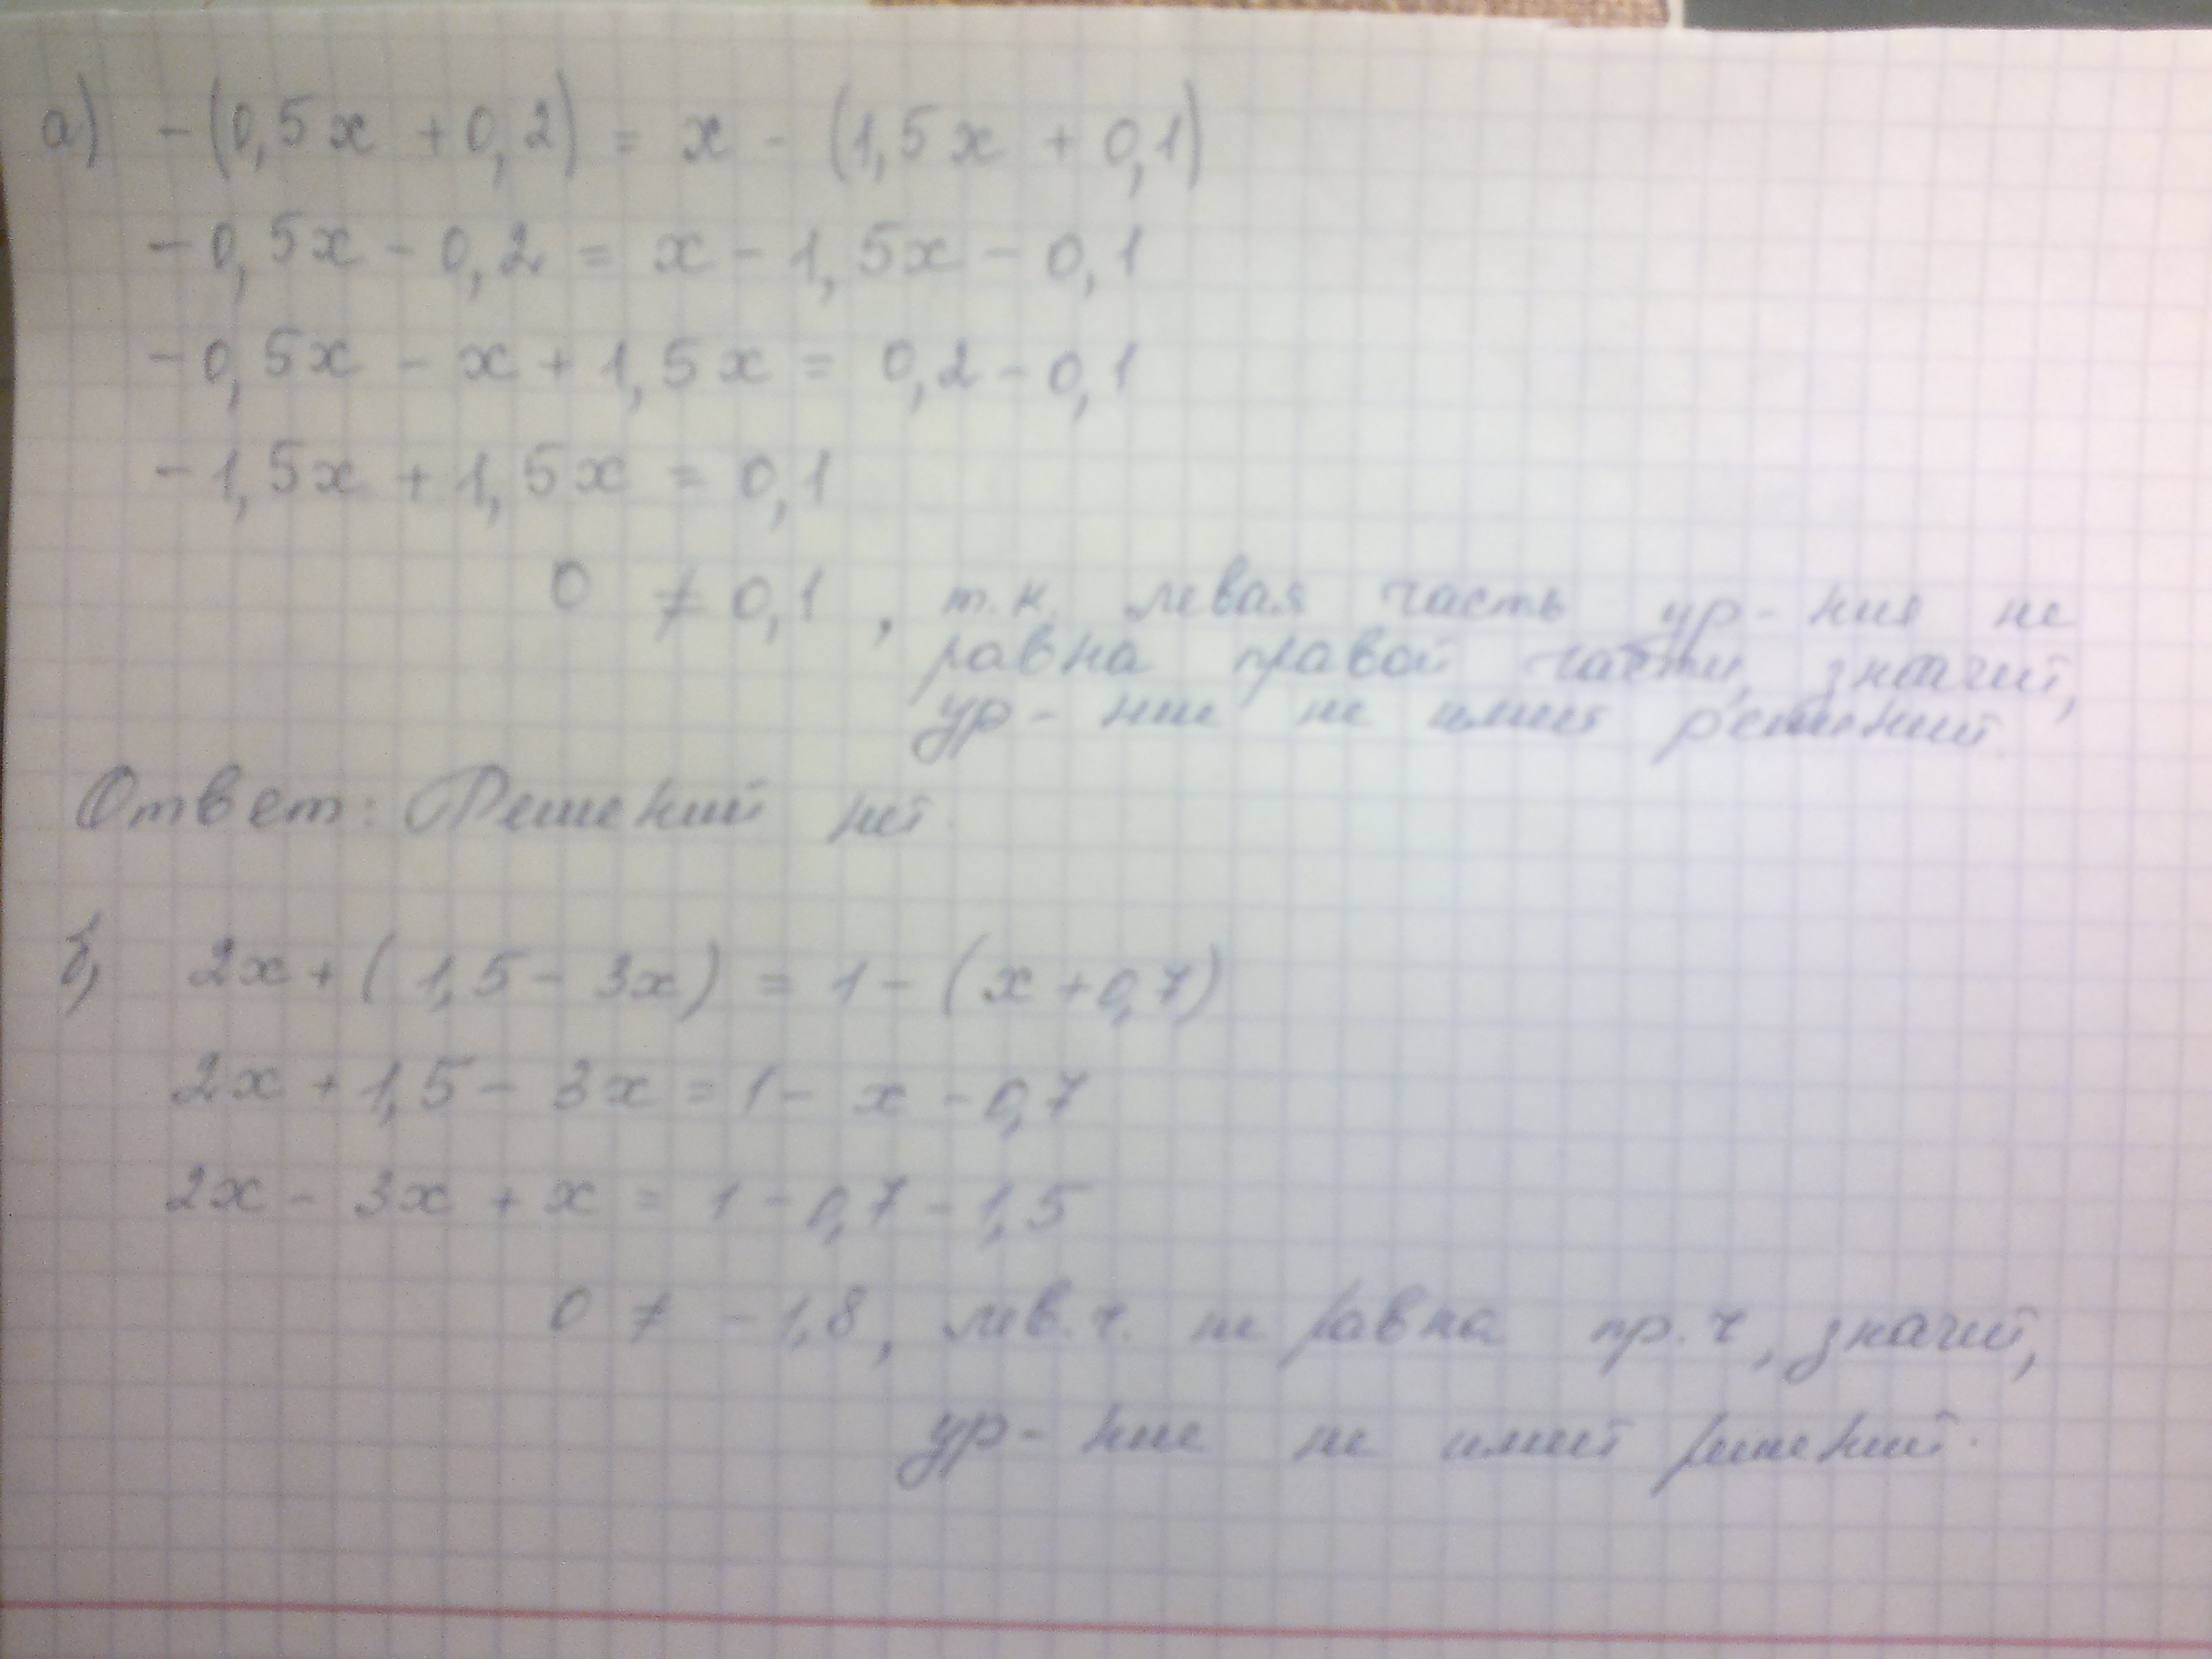 а) -(0,5x + 0,2) = x - (1,5x + 0,1)
-0,5x - 0,2 = x - 1,5x - 0,1
-0,5x - x + 1,5x = 0,2 - 0,1
-1,5x + 1,5x = 0,1
0 ≠ 0,1 , т.к. левая часть ур-ния не
равна правой части, значит,
ур-ние не имеет решений.
Ответ: Решений нет.
б) 2x + (1,5 - 3x) = 1 - (x + 0,7)
2x + 1,5 - 3x = 1 - x - 0,7
2x - 3x + x = 1 - 0,7 - 1,5
0 ≠ -1,8, лев.ч. не равна пр.ч, значит,
ур-ние не имеет решений.